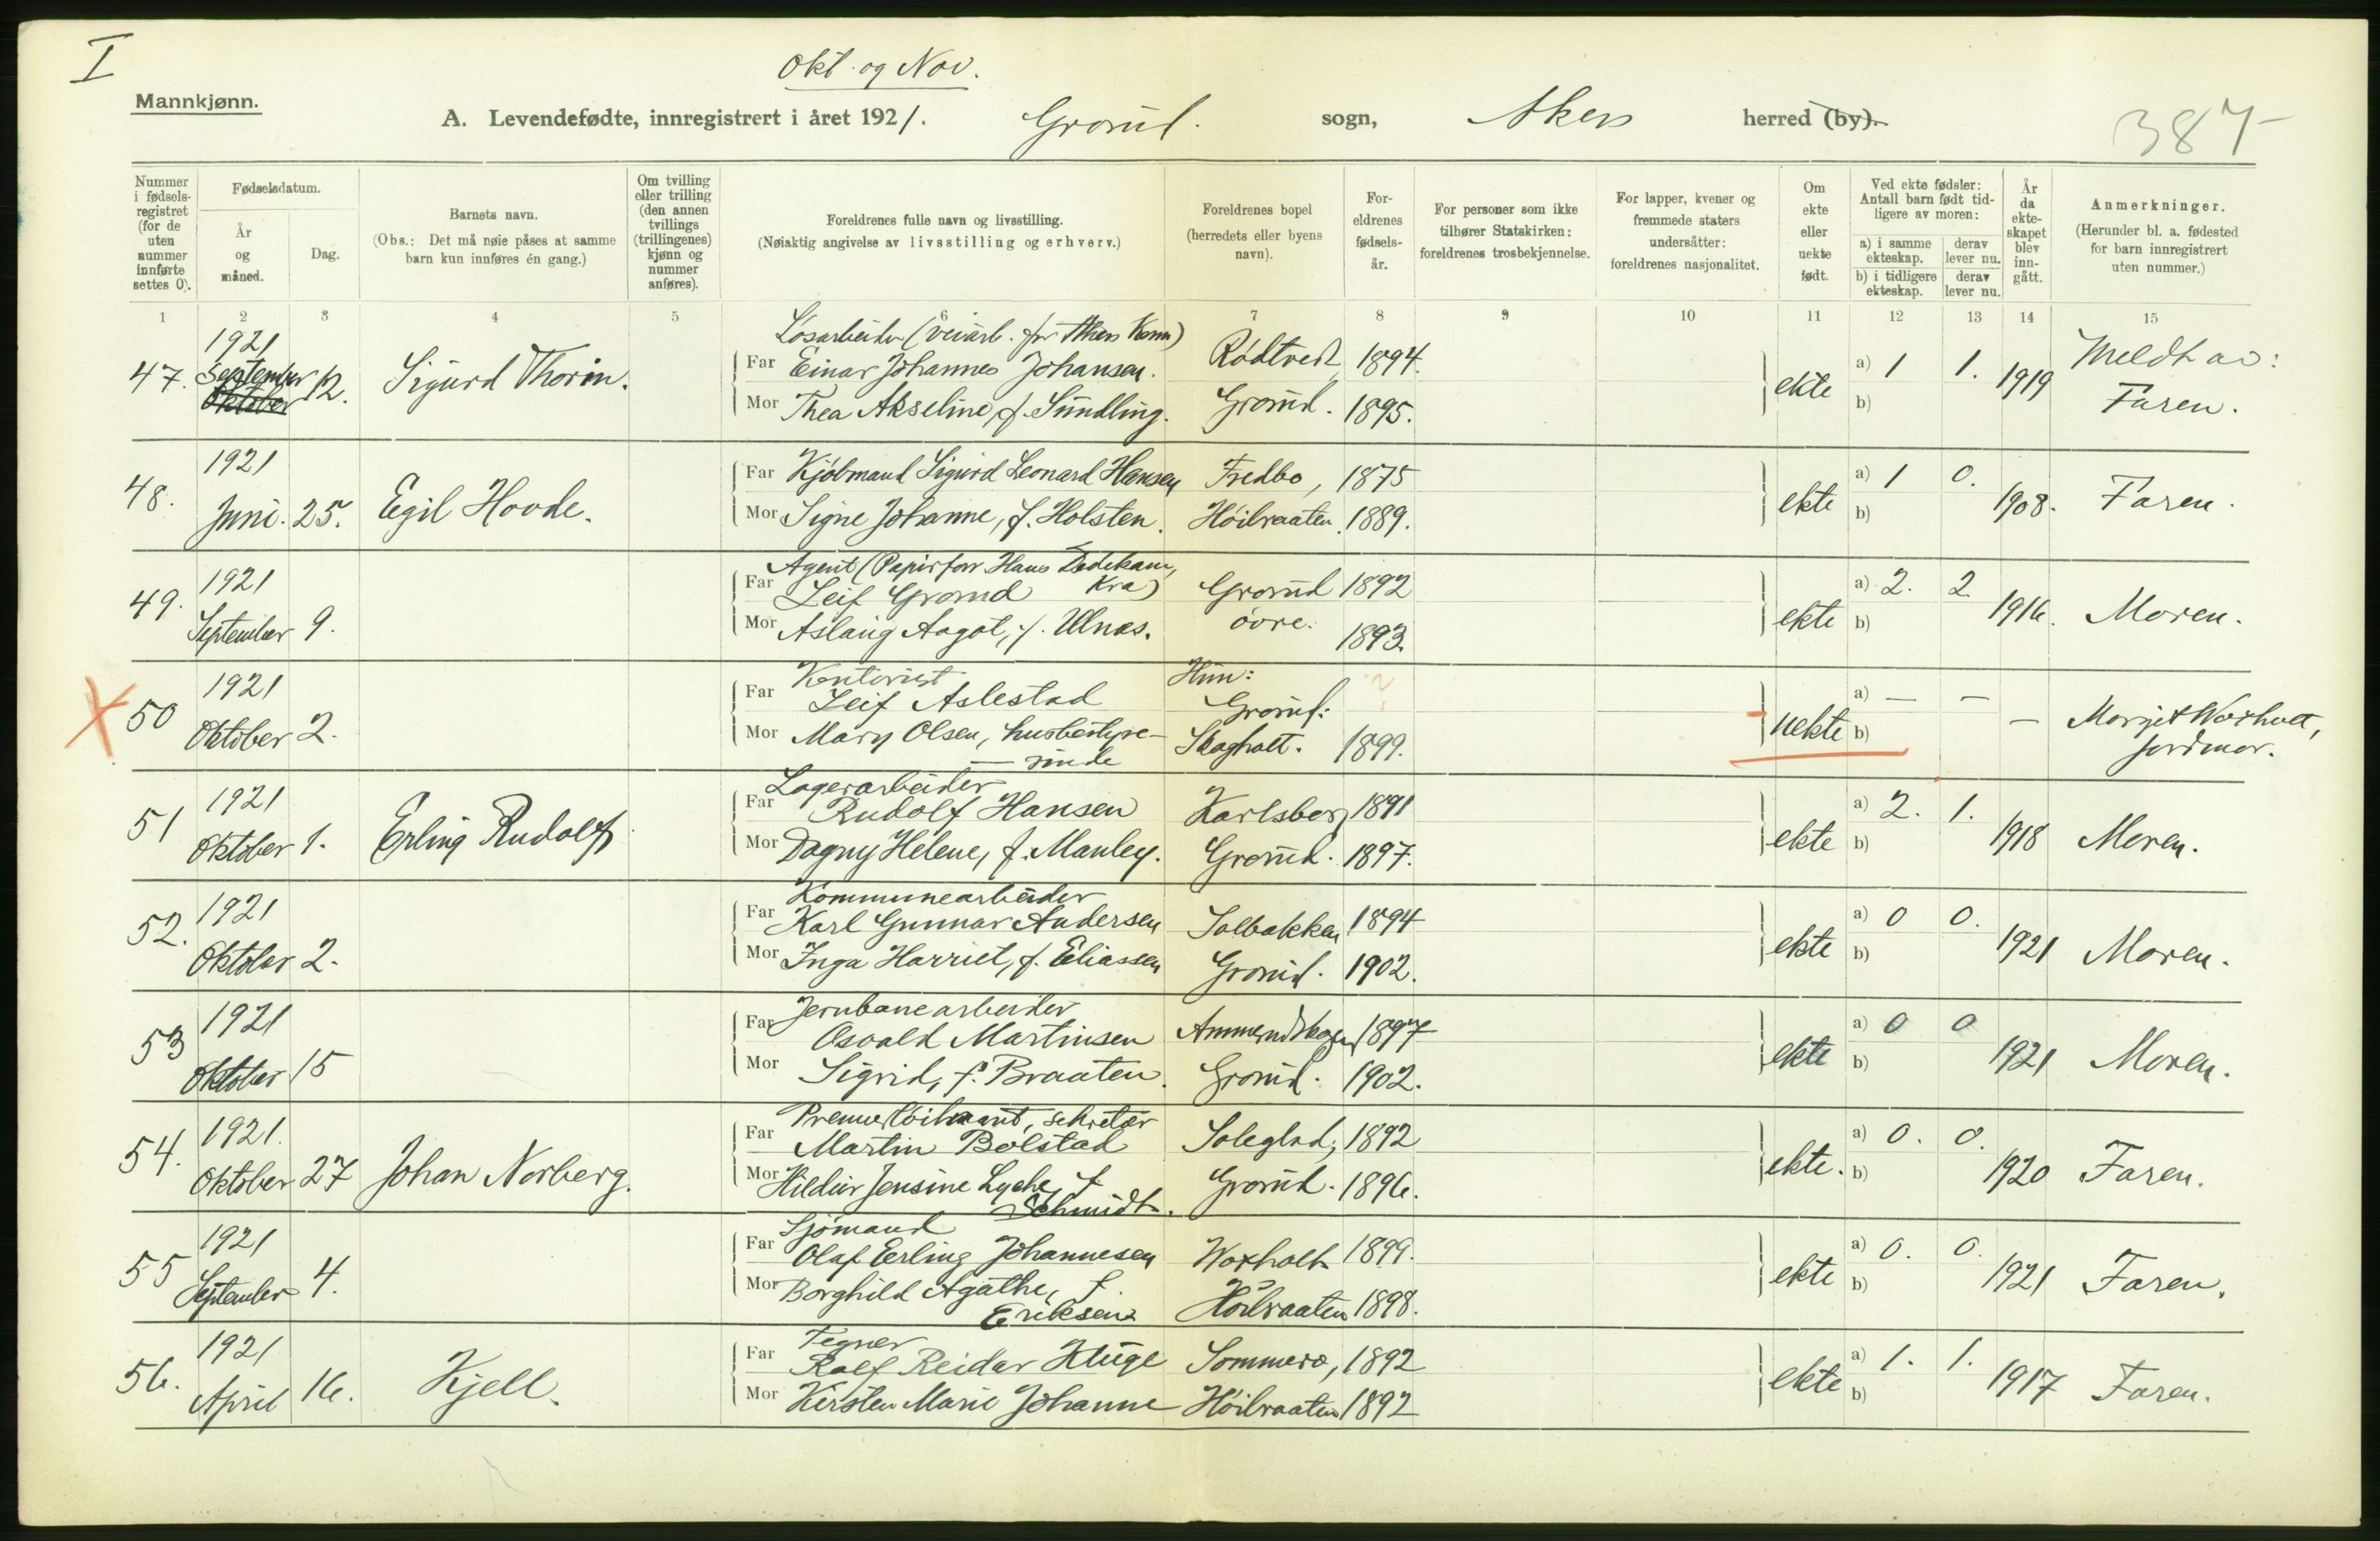 I
Okt. og Nov.
Mannkjønn.
A. Levendefødte, innregistrert i året 1921. Grorud. sogn, Akers herred (by).
387
Nummer i fødsels-registret (for de uten nummer innførte settes 0).
Fødselsdatum.
År og måned.
Dag.
Barnets navn.
(Obs.: Det må nøie påses at samme barn kun innføres én gang.)
Om tvilling eller trilling (den annen tvillings (trillingenes) kjønn og nummer anføres).
Foreldrenes fulle navn og livsstilling.
(Nøiaktig angivelse av livsstilling og erhverv.)
Foreldrenes bopel (herredets eller byens navn).
For-eldrenes fødsels-år.
For personer som ikke tilhører Statskirken: foreldrenes trosbekjennelse.
For lapper, kvener og fremmede staters undersåtter: foreldrenes nasjonalitet.
Om ekte eller uekte født.
Ved ekte fødsler: Antall barn født tid-ligere av moren:
a) i samme ekteskap.
derav lever nu.
b) i tidligere ekteskap.
derav lever nu.
År da ekte-skapet blev inn-gått.
Anmerkninger.
(Herunder bl. a. fødested for barn innregistrert uten nummer.)
1 2 3 4 5 6 7 8 9 10 11 12 13 14 15
Løsarbeider (veiarb. for Akers Kom)
47. 1921 September Oktober 12. Sigurd Thorin. Far Einar Johannes Johansen. Rødtvedt 1894. ekte a) 1 1. 1919 Meldt av:
Mor Thea Akseline, f. Sundling. Grorud. 1895. b) Faren.
48. 1921 Juni. 25. Egil Hovde. Far Kjøbmand Sigurd Leonard Hansen Fredbo, 1875 ekte a) 1 0. 1908. Faren.
Mor Signe Johanne, f. Holsten. Høibraaten. 1889. b)
Agent (Papirforr. Hans Dedekam, Kra)
49. 1921 September 9. Far Leif Grorud Grorud 1892 ekte a) 2. 2 1916. Moren.
Mor Aslaug Aagot, f. Ulnæs. øvre. 1893. b)
Kontorist Hun:
X 50 1921 Oktober 2. Far Leif Aslestad Grorud: ? uekte a) — — — Margit Woxholt,
Mor Mary Olsen, husbestyre- Skogholt. 1899. b) jordmor.
— rinde
Lagerarbeider
51 1921 Oktober 1. Erling Rudolf Far Rudolf Hansen Karlsberg 1891 ekte a) 2. 1. 1918 Moren.
Mor Dagny Helene, f. Manley. Grorud. 1897. b)
Kommunearbeider
52. 1921 Oktober 2. Far Karl Gunnar Andersen Solbakken 1894 ekte a) 0 0. 1921 Moren.
Mor Inga Harriet, f. Eliassen Grorud. 1902. b)
Jernbanearbeider
53 1921 Oktober 15 Far Osvald Martinsen Ammerudskogen 1897 ekte a) 0 0 1921 Moren.
Mor Sigrid, f. Braaten. Grorud. 1902. b)
Premierløitnant, sekretær
54. 1921. Oktober 27 Johan Norberg. Far Martin Bolstad Soleglad, 1892 ekte. a) 0. 0. 1920 Faren.
Mor Hildur Jensine Lyche, f. Grorud. 1896. b)
Schmidt.
Sjømand
55 1921 September 4. Far Olaf Erling Johannesen Woxholt 1899. ekte a) 0. 0. 1921 Faren.
Mor Borghild Agathe, f. Høibraaten 1898. b)
Eriksen
Tegner
56. 1921 April 16. Kjell. Far Rolf Reidar Kluge Sommero, 1892 ekte a) 1. 1. 1917 Faren.
Mor Kirsten Marie Johanne Høibraaten 1892 b)